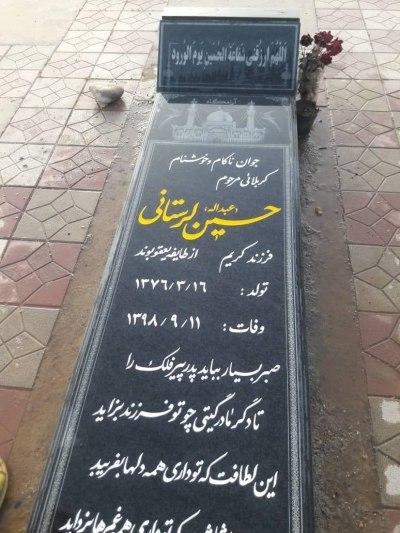 اللهم ارزقنی شفاعة الحسین یوم الورود
آرامگاه
جوان ناکام و خوشنام
کربلائی مرحوم
(عبداله)
حسین لرستانی
فرزند کریم از طایفه یعقوبوند
تولد : ۱۳۷۶/۳/۱۶
وفات : ۱۳۹۸/۹/۱۱
صبر بسیار بباید پدر پیر فلک را
تا دگر مادر گیتی چو تو فرزند بزاید
این لطافت که تو داری همه دلها بفریبد
که تو داری همه غمها بزداید